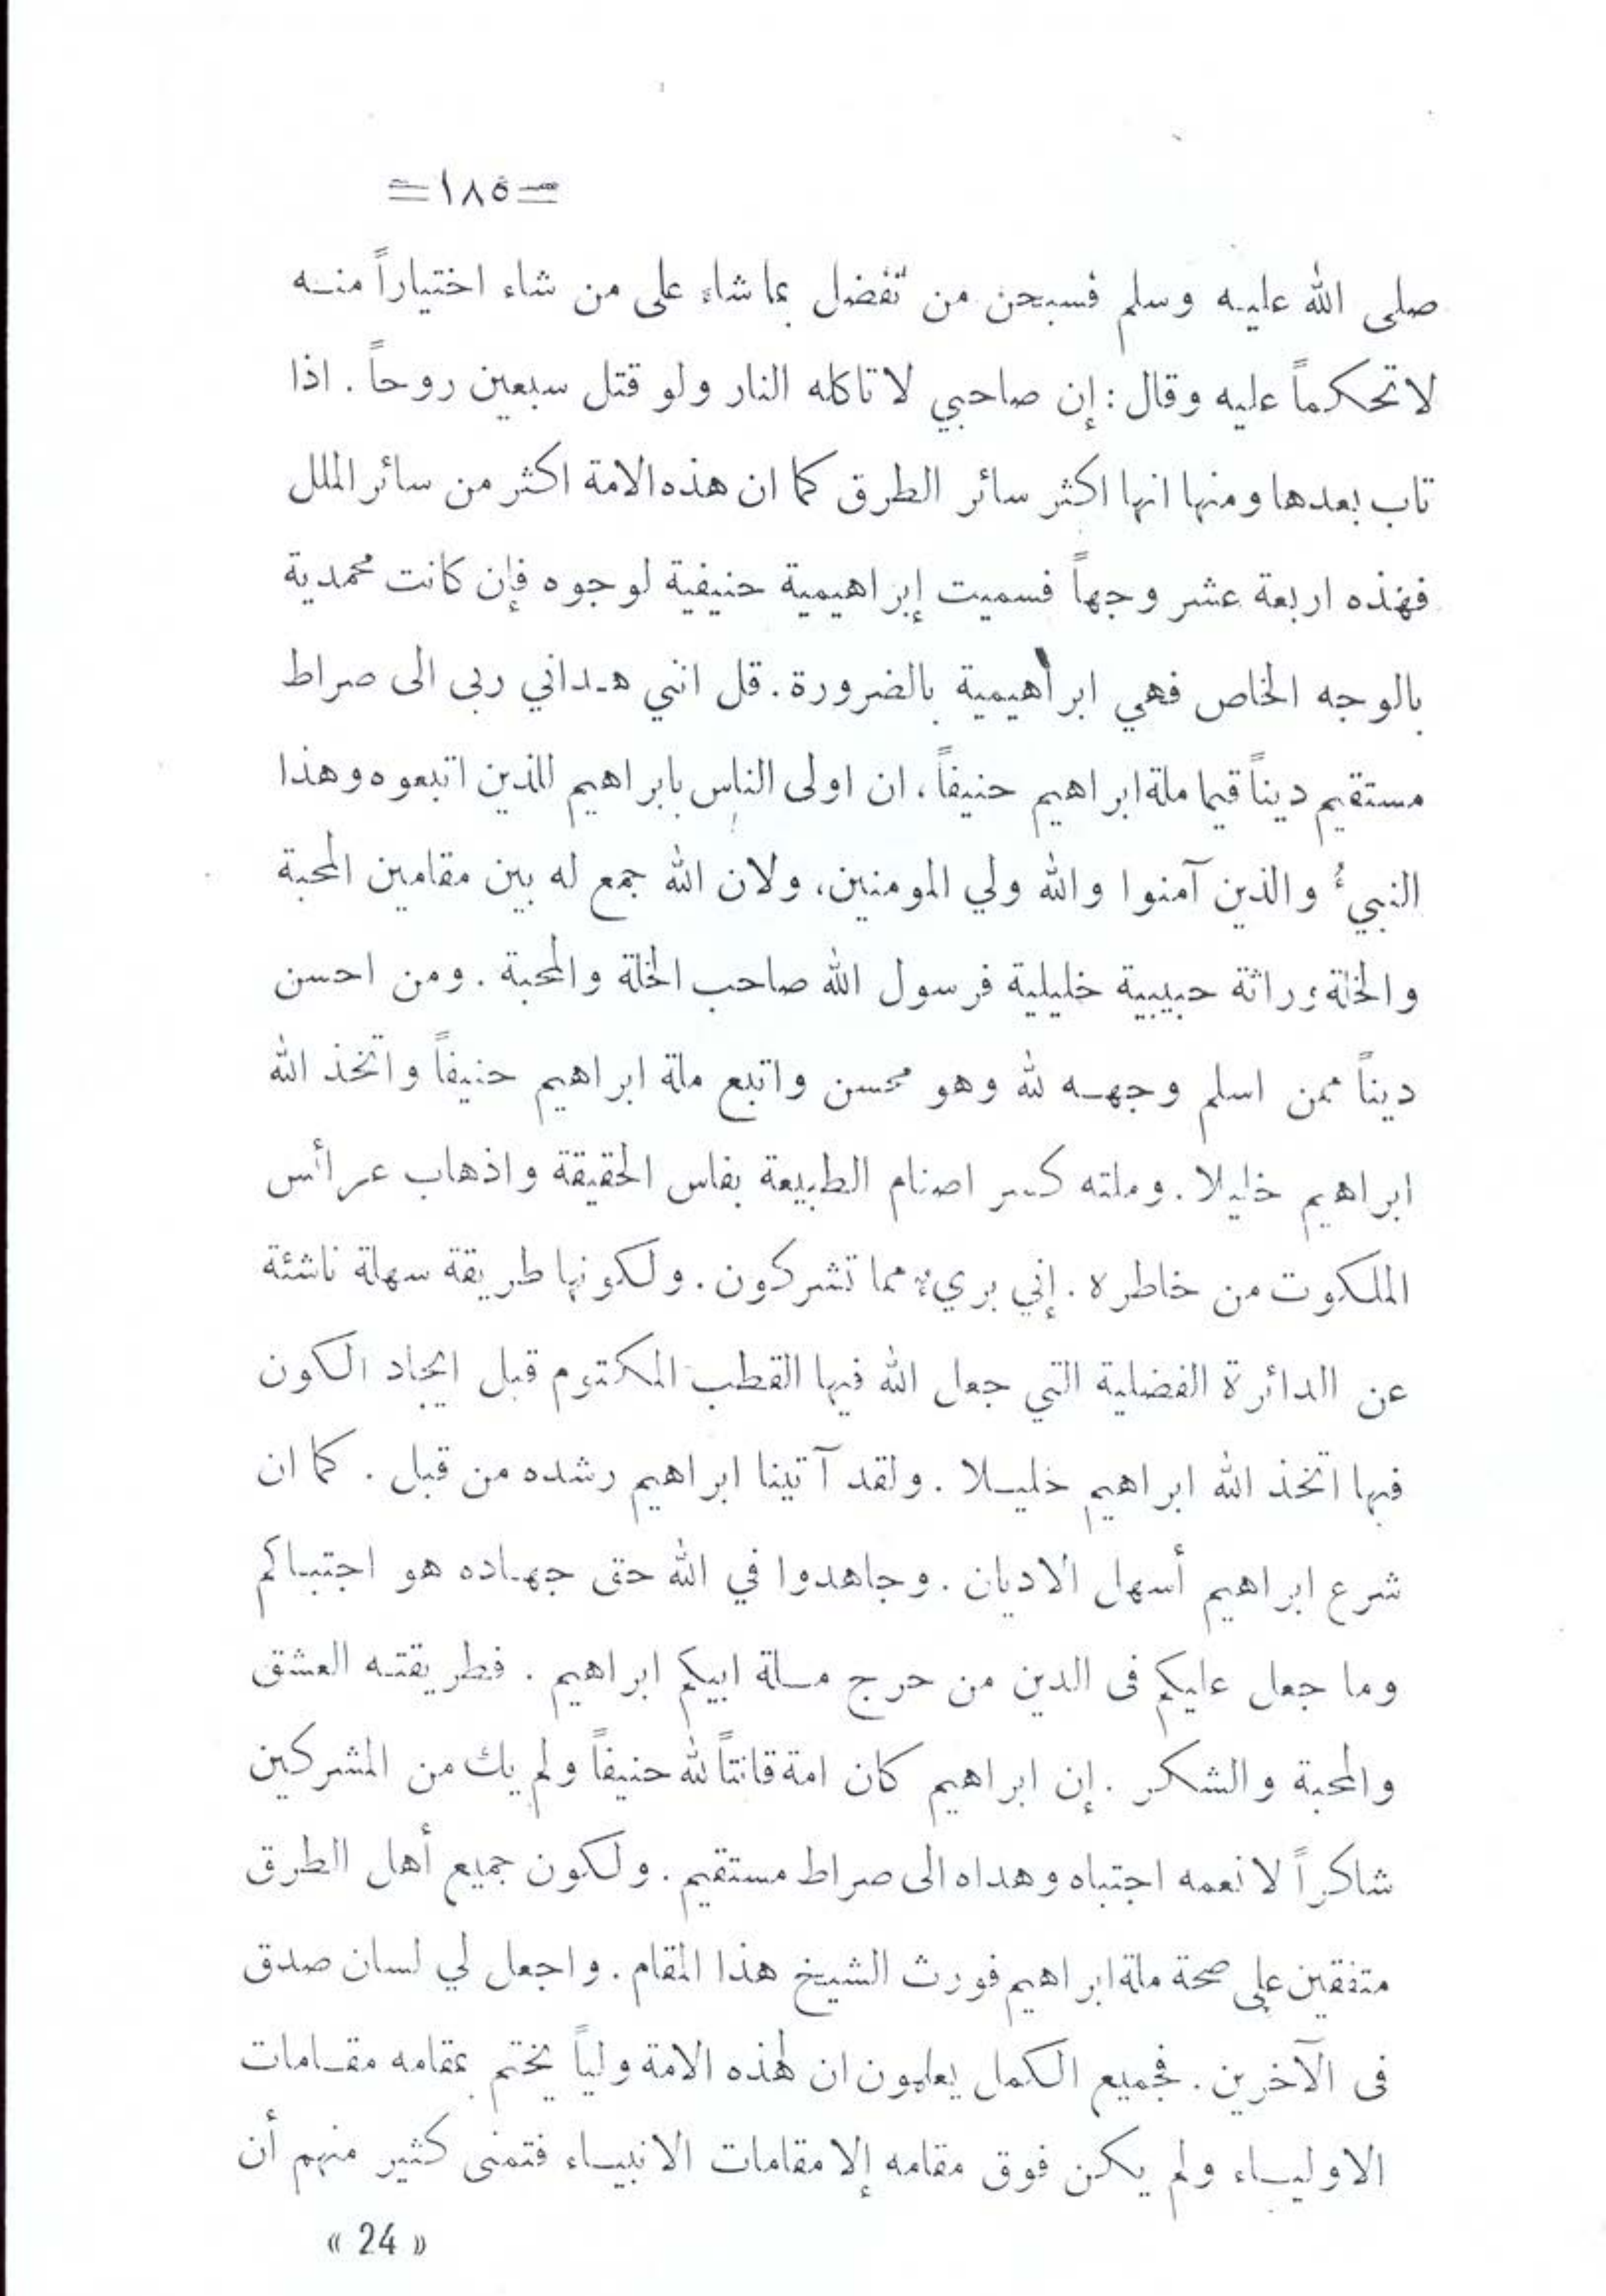 =١٨٥=
صلى الله عليه وسلم فسبحن من تفضل بما شاء على من شاء اختياراً منه
لا تحكماً عليه وقال : إن صاحبي لا تاكله النار ولو قتل سبعين روحاً . اذا
تاب بعدها ومنها انها اكثر سائر الطرق كما ان هذه الامة اكثر من سائر الملل
فهذه اربعة عشر وجهاً فسميت إبراهيمية حنيفية لوجوه فإن كانت محمدية
بالوجه الخاص فهي ابراهيمية بالضرورة . قل انني هداني ربى الى صراط
مستقيم ديناً قيما ملة ابراهيم حنيفاً ، ان اولى الناس بابراهيم للذين اتبعوه وهذا
النبيءُ والذين آمنوا والله ولي المومنين، ولان الله جمع له بين مقامين المحبة
والخلة وراثة حبيبية خليلية فرسول الله صاحب الخلة والمحبة . ومن احسن
ديناً ممن اسلم وجهه لله وهو محسن واتبع ملة ابراهيم حنيفاً واتخذ الله
ابراهيم خليلا . وملته كسر اصنام الطبيعة بفاس الحقيقة واذهاب عرائس
الملكوت من خاطره . إني بريء مما تشركون . ولكونها طريقة سهلة ناشئة
عن الدائرة الفضلية التي جعل الله فيها القطب المكتوم قبل ايجاد الكون
فبها اتخذ الله ابراهيم خليلا . ولقد آتينا ابراهيم رشده من قبل . كما ان
شرع ابراهيم أسهل الاديان . وجاهدوا في الله حق جهاده هو اجتباكم
وما جعل عليكم فى الدين من حرج ملة ابيكم ابراهيم . فطريقته العشق
والمحبة والشكر . إن ابراهيم كان امة قانتاً لله حنيفاً ولم يك من المشركين
شاكراً لانعمه اجتباه وهداه الى صراط مستقيم . ولكون جميع أهل الطرق
متفقين على صحة ملة ابراهيم فورث الشيخ هذا المقام . واجعل لي لسان صدق
فى الآخرين . فجميع الكمل يعلمون ان لهذه الامة ولياً يختم بمقامه مقامات
الاولياء ولم يكن فوق مقامه إلا مقامات الانبياء فتمنى كثير منهم أن
« 24 »